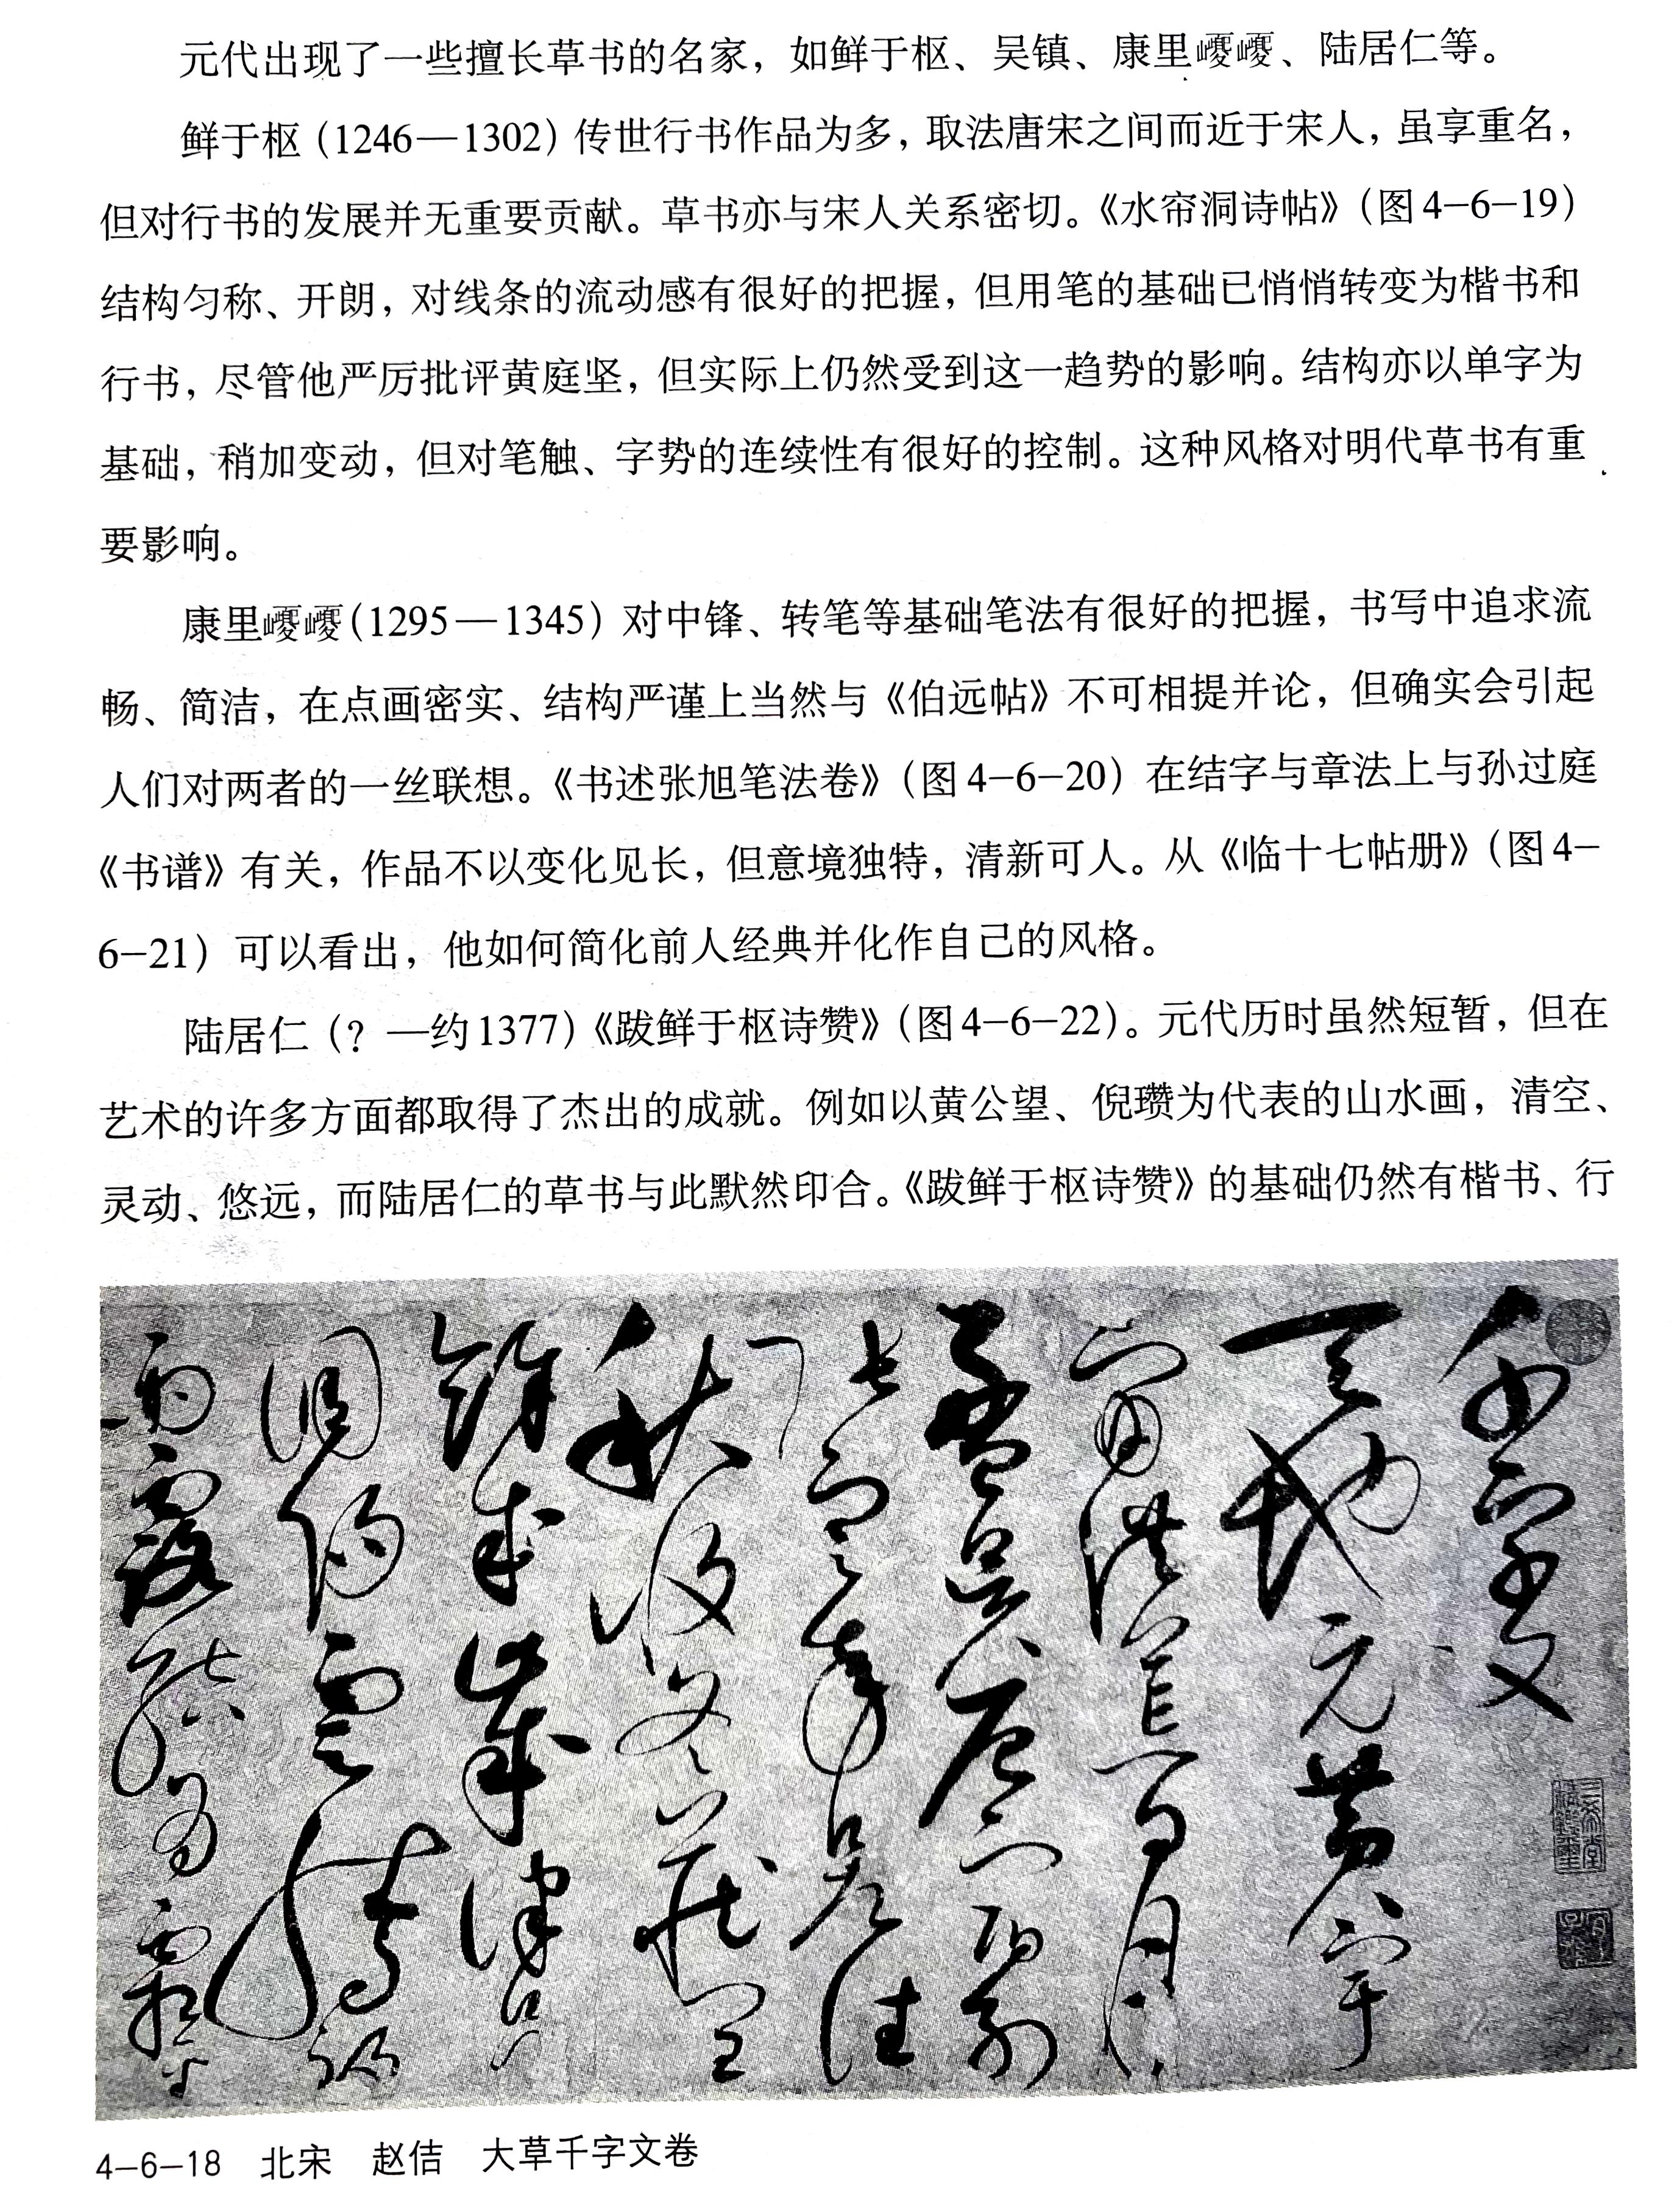 元代出现了一些擅长草书的名家，如鲜于枢、吴镇、康里巙巙、陆居仁等。
鲜于枢（1246—1302）传世行书作品为多，取法唐宋之间而近于宋人，虽享重名，
但对行书的发展并无重要贡献。草书亦与宋人关系密切。《水帘洞诗帖》（图4-6-19）
结构匀称、开朗，对线条的流动感有很好的把握，但用笔的基础已悄悄转变为楷书和
行书，尽管他严厉批评黄庭坚，但实际上仍然受到这一趋势的影响。结构亦以单字为
基础，稍加变动，但对笔触、字势的连续性有很好的控制。这种风格对明代草书有重
要影响。
康里巙巙（1295—1345）对中锋、转笔等基础笔法有很好的把握，书写中追求流
畅、简洁，在点画密实、结构严谨上当然与《伯远帖》不可相提并论，但确实会引起
人们对两者的一丝联想。《书述张旭笔法卷》（图4-6-20）在结字与章法上与孙过庭
《书谱》有关，作品不以变化见长，但意境独特，清新可人。从《临十七帖册》（图4-
6-21）可以看出，他如何简化前人经典并化作自己的风格。
陆居仁（？—约1377）《跋鲜于枢诗赞》（图4-6-22）。元代历时虽然短暂，但在
艺术的许多方面都取得了杰出的成就。例如以黄公望、倪瓒为代表的山水画，清空、
灵动、悠远，而陆居仁的草书与此默然印合。《跋鲜于枢诗赞》的基础仍然有楷书、行
千字文
天地元黄宇
宙洪荒日月
盈昃辰宿列
张寒来暑往
秋收冬藏闰
馀成岁律吕
调阳云腾致
雨露结为霜
4-6-18 北宋 赵佶 大草千字文卷